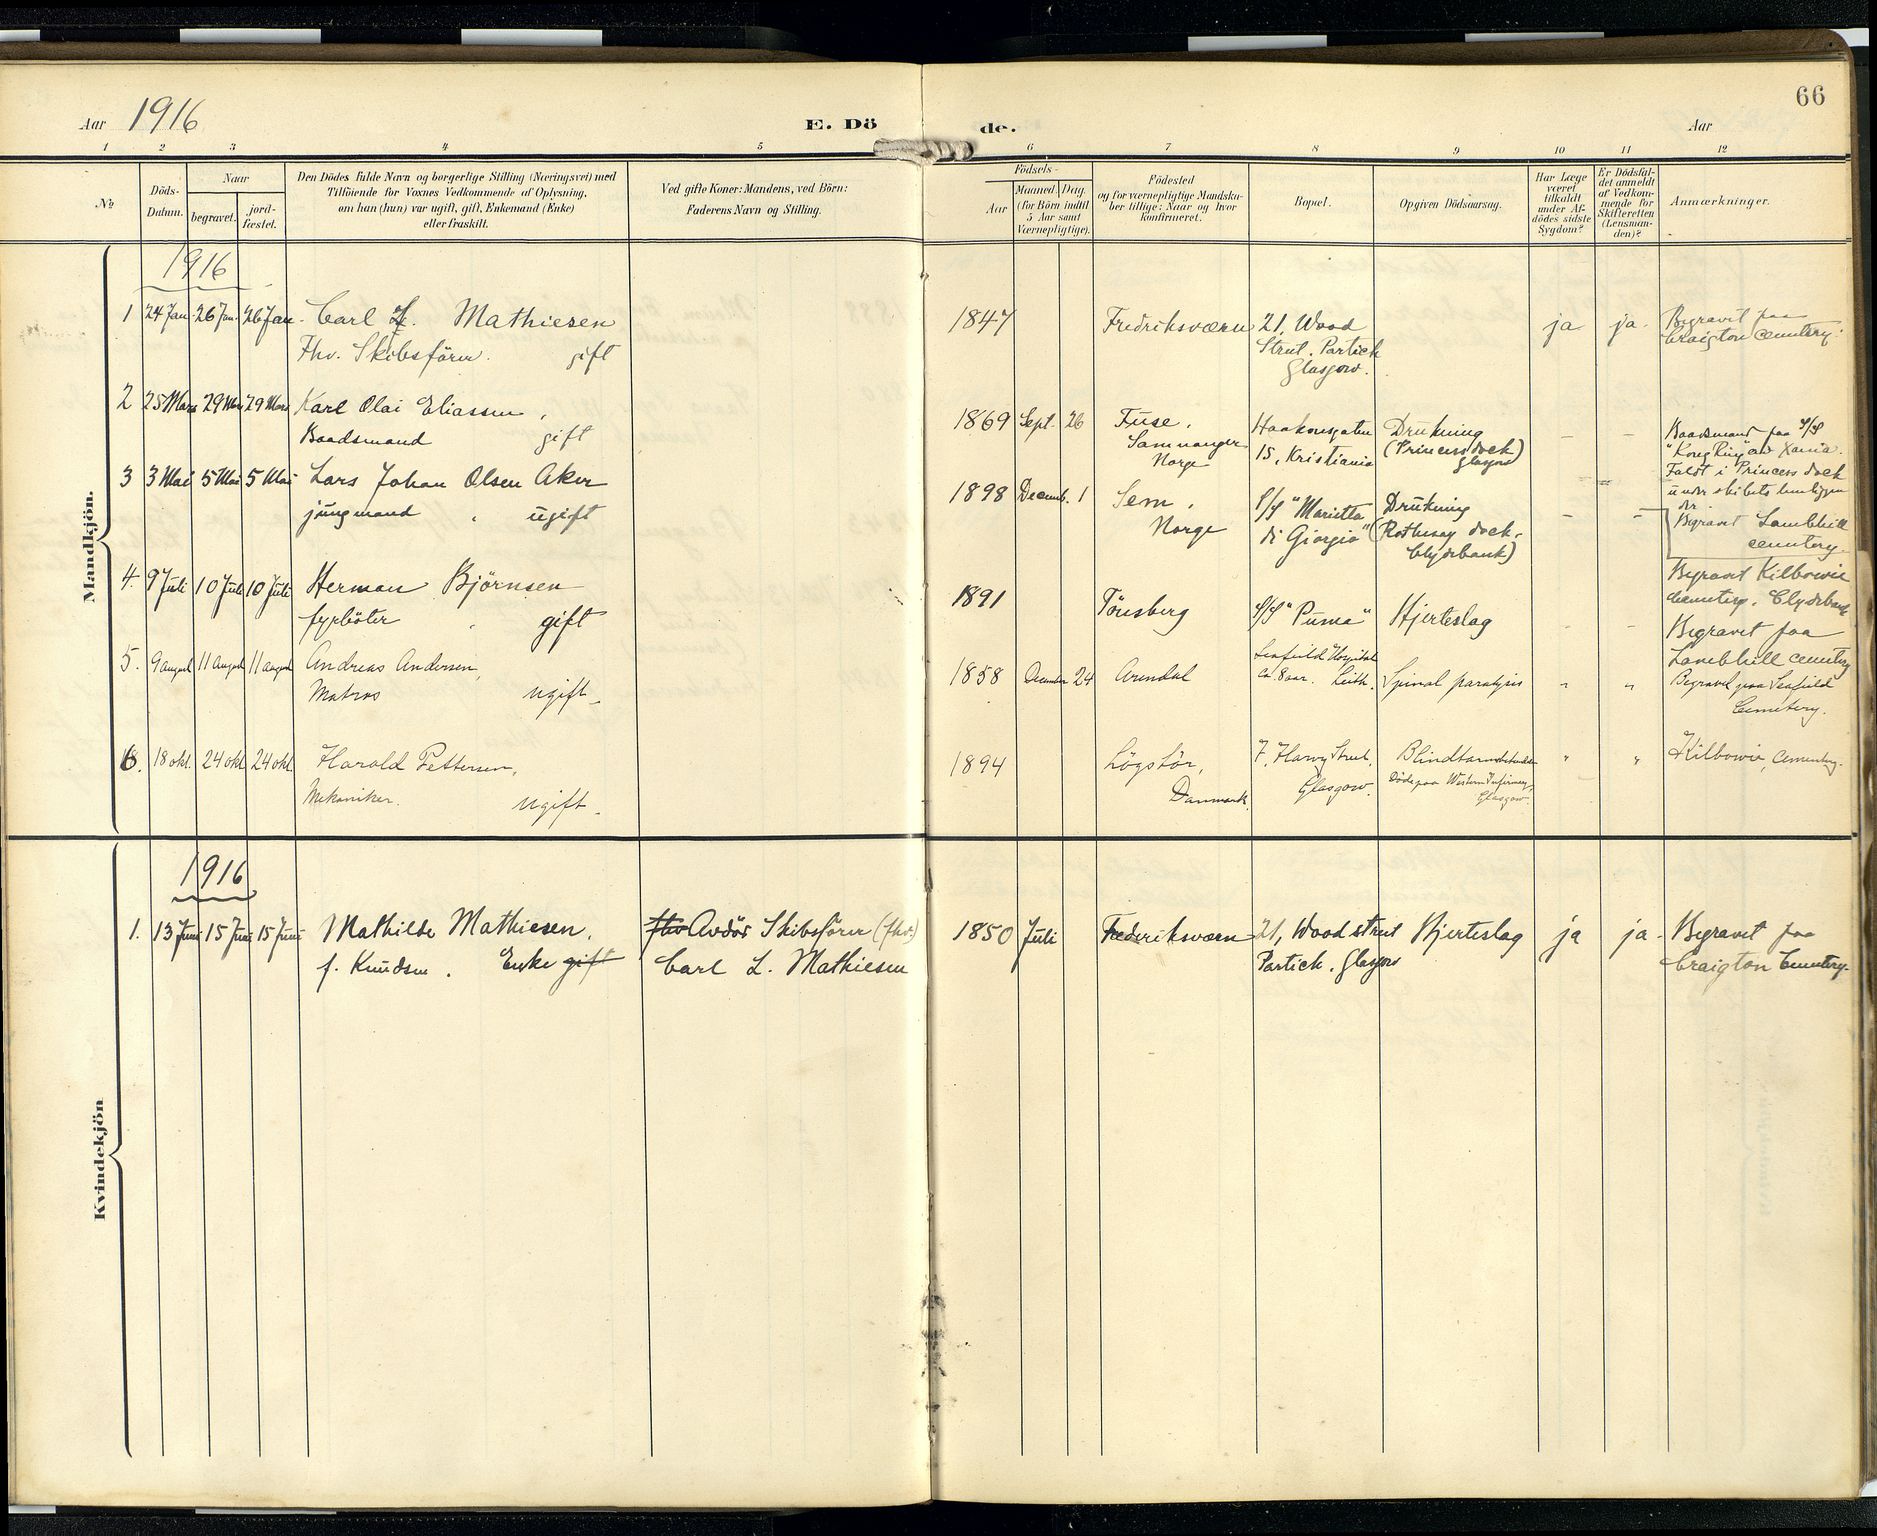 66
Aar 1916
E. Dö de.
Aar
1 2 3 4 5 6 7 8 9 10 11 12
№
Döds-Datum.
Naar
begravet.
jord-fæstet.
Den Dödes fulde Navn og borgerlige Stilling (Næringsvei) med
Tilföiende for Voxnes Vedkommende af Oplysning,
om han (hun) var ugift, gift, Enkemand (Enke)
eller fraskilt.
Ved gifte Koner: Mandens, ved Börn:
Faderens Navn og Stilling.
Födsels-
Aar
Maaned. Dag.
(for Börn indtil
5 Aar samt
Værnepligtige).
Födested
og for værnepligtige Mandska-
ber tillige: Naar og hvor
konfirmeret.
Bopæl.
Opgiven Dödsaarsag.
Har Læge
været
tilkaldt
under Af-
dödes sidste
Sygdom?
Er Dödsfal-
det anmeldt
af Vedkom-
mende for
Skifteretten
(Lensman-
den)?
Anmærkninger.
Mandkjön.
1916
1 24 Jan. 26 Jan. 26 Jan. Carl L. Mathiesen 1847 Fredriksværn 21, Wood ja ja. Begravet paa
Fhv. Skibsförer. gift Street. Partick Craigton Cemetery.
Glasgow.
2 25 Mars 29 Mars 29 Mars Karl Olai Eliassen, 1869 Sept. 26 Fuse, Haakonsgaten Drukning – – Baadsmand paa S/S
Baadsmand gift Samnanger 15, Kristiania (Princess dock) "Kong Ring" av Xania.
Norge Glasgow Faldt i Princess dock
under skibets henliggen
der.
3 3 Mai 5 Mai 5 Mai Lars Johan Olsen Aker 1898 Decemb. 1 Sem, S/S "Marietta Drukning – – Begravet Lambhill
jungmand ugift Norge di Giorgio" (Rothesay dock, cemetery.
Clydebank)
Begravet Kilbowie
Cemetery. Clydebank
4. 9 Juli 10 Juli 10 Juli Herman Bjørnsen 1891 Tönsberg S/S "Puma" Hjerteslag - - Begravet paa
fyrböter gift Lambhill cemetery
5. 9 august 11 august 11 august Andreas Andersen, 1858 December 24 Arendal Seafield Hospital Spinal paralysis " " Begravet paa Seafield
Matros ugift. ca 8 aar. Leith. Cemetery.
6. 18 okt. 24 okt. 24 okt. Harald Pettersen, 1894 Lögstör, 7, Harvy Street, " " Kilbowie, Cemetery.
Mekaniker. ugift. Danmark. Glasgow. Döde paa Western Infirmary,
Glasgow.
Kvindekjön
1916
1. 13 Juni 15 Juni 15 Juni Mathilde Mathiesen. fhv Avdør Skibsförer (fhv.) 1850 Juli Frederiksværn 21, Wood street Hjerteslag ja ja. Begravet paa
f. Knudsen. Enke gift Carl L. Mathiesen Partick. Glasgow Craigton Cemetery.